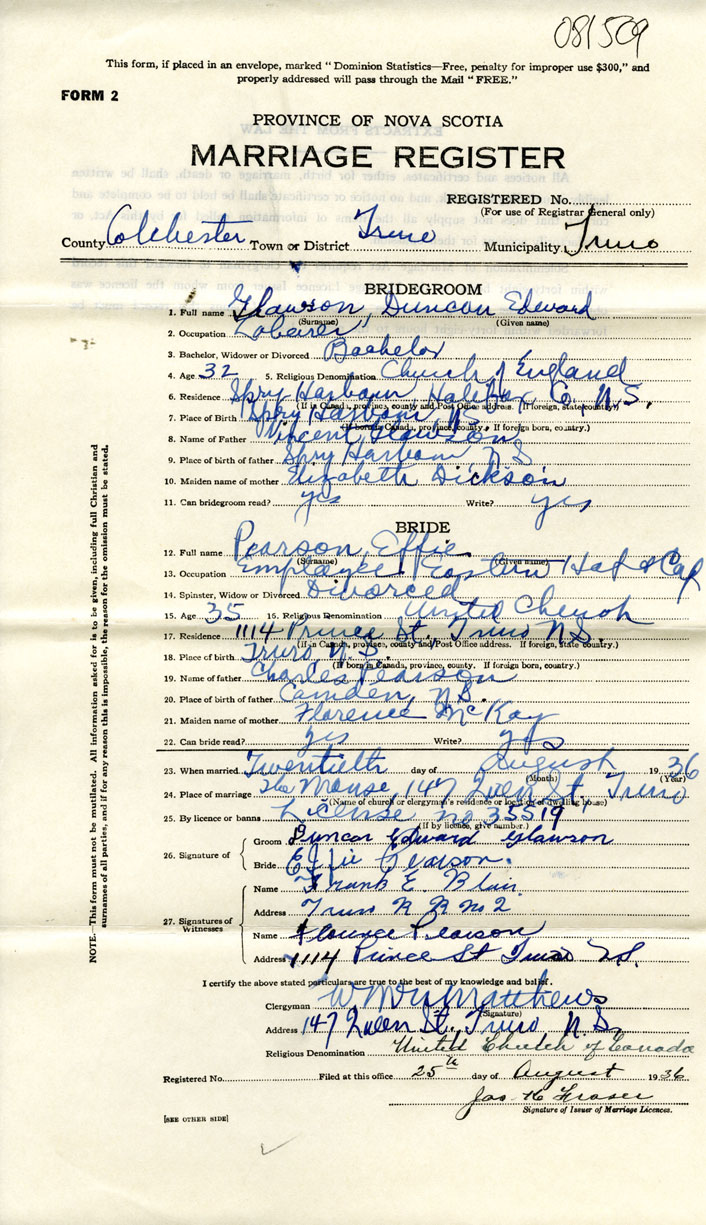 081509
This form, if placed in an envelope, marked "Dominion Statistics—Free, penalty for improper use $300," and
properly addressed will pass through the Mail "FREE."
FORM 2
PROVINCE OF NOVA SCOTIA
MARRIAGE REGISTER
REGISTERED No.
(For use of Registrar General only)
County Colchester Town or District Truro Municipality Truro
BRIDEGROOM
1. Full name Glawson, Duncan Edward
(Surname) (Given name)
2. Occupation Laborer
3. Bachelor, Widower or Divorced Bachelor
4. Age 32 5. Religious Denomination Church of England
6. Residence Spry Harbour Halifax Co. N.S.
(If in Canada, province, county and Post Office address. If foreign, state country.)
7. Place of Birth Spry Harbour N.S.
(If born in Canada, province, county. If foreign born, country.)
8. Name of Father Vincent Glawson
9. Place of birth of father Spry Harbour N S
10. Maiden name of mother Elizabeth Dickson
11. Can bridegroom read? yes Write? yes
BRIDE
12. Full name Pearson, Effie
(Surname) (Given name)
13. Occupation Employee Eastern Hat & Cap
14. Spinster, Widow or Divorced Divorced
15. Age 35 16. Religious Denomination United Church
17. Residence 1114 Prince St. Truro N.S.
(If in Canada, province, county and Post Office address. If foreign, state country.)
18. Place of birth Truro N.S.
(If born in Canada, province, county. If foreign born, country.)
19. Name of father Charles Pearson
20. Place of birth of father Camden, N.S.
21. Maiden name of mother Florence McKay
22. Can bride read? yes Write? yes
23. When married Twentieth day of August 1936
(Month) (Year)
24. Place of marriage The Manse, 147 Queen St, Truro
(Name of church or clergyman's residence or location of dwelling house)
25. By licence or banns License no 35519
(If by licence, give number.)
26. Signature of Groom Duncan Edward Glawson
Bride Effie Pearson.
27. Signatures of Witnesses Name Frank E. Blair
Address Truro R R no 2
Name Florence Pearson
Address 1114 Prince St Truro N.S.
I certify the above stated particulars are true to the best of my knowledge and belief.
Clergyman Matthews
(Signature)
Address 147 Queen St., Truro, N.S.
Religious Denomination United Church of Canada
Registered No. Filed at this office 25th day of August 1936
Jas H Fraser
Signature of Issuer of Marriage Licences.
[SEE OTHER SIDE]
NOTE.—This form must not be mutilated. All information asked for is to be given, including full Christian and
surnames of all parties, and if for any reason this is impossible, the reason for the omission must be stated.